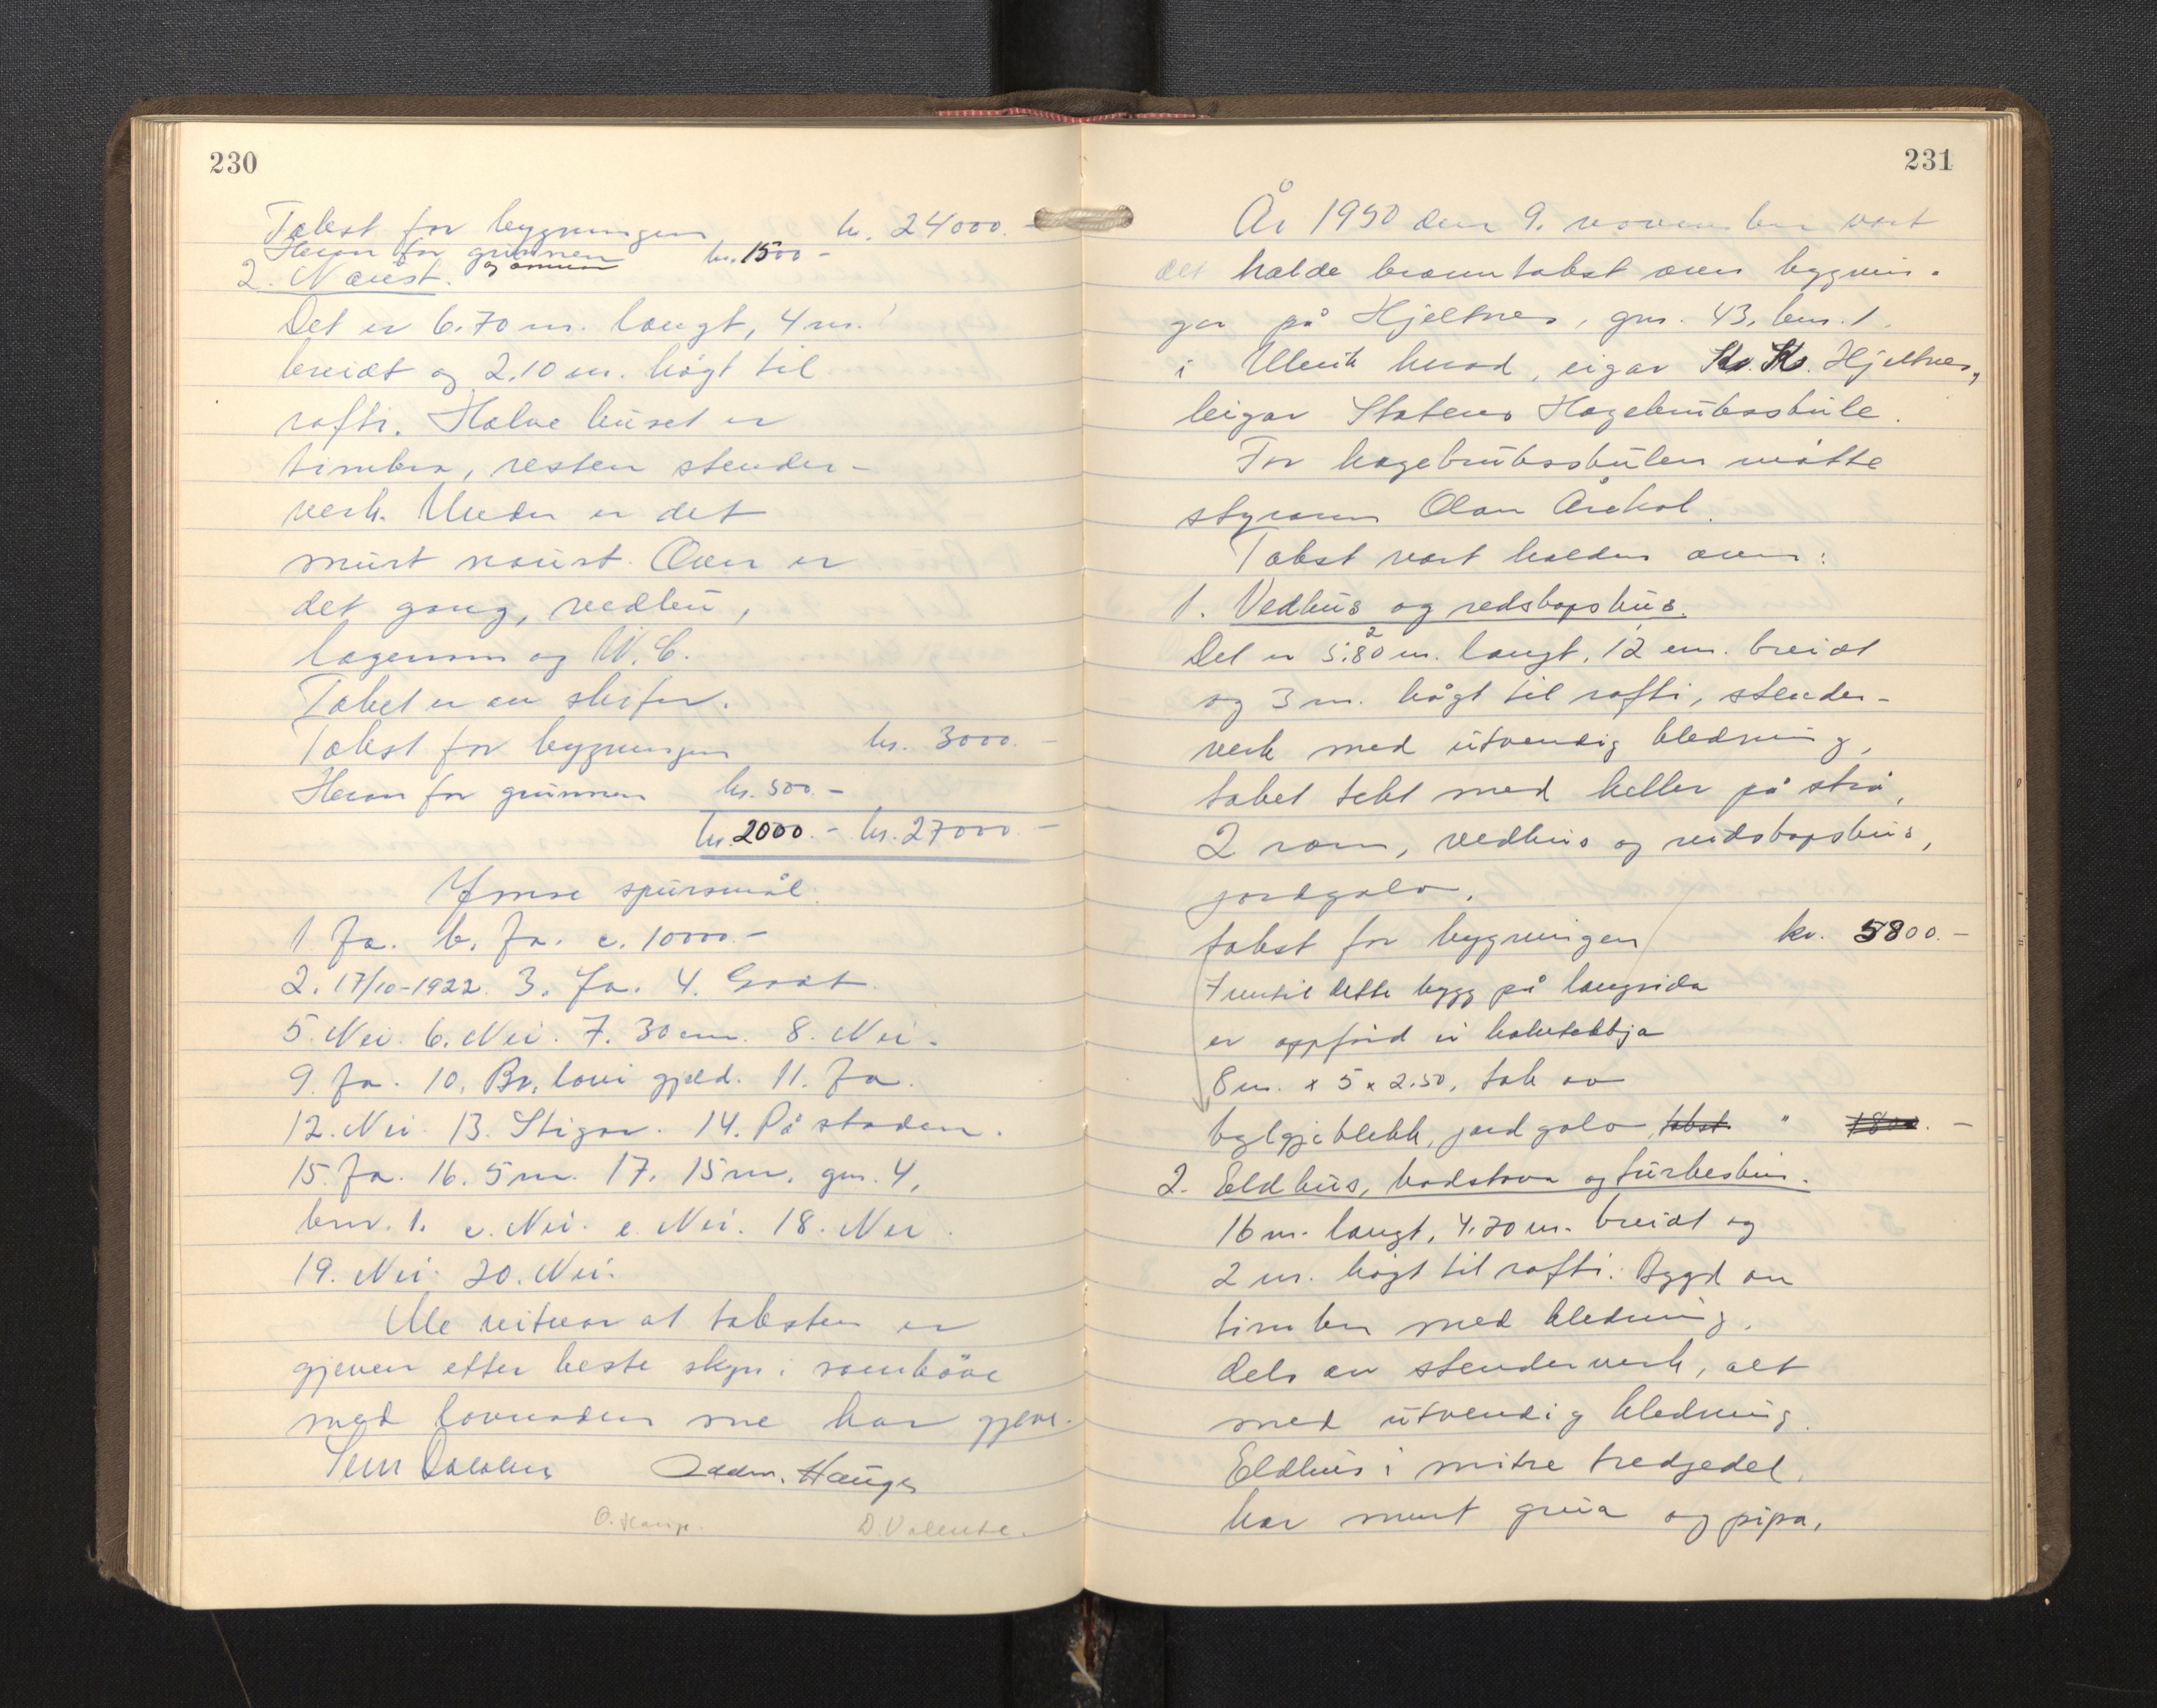 230
Takst for bygningen kr. 24000.-
Herav for grunnen kr. 1500 -
og annen
2. Naust.
Det er 6.70 m. langt, 4 m.
breidt og 2.10 m. högt til
rafti. Halve huset er
timbra, resten stender-
verk. Under er det
murt naust. Over er
det gang, vedbu,
lagerrum og W.C.
Taket er av skifer.
Takst for bygningen kr. 3000.-
Herav for grunnen kr. 500.-
kr. 2000.- kr. 27000.-
Ymse spursmål.
1. Ja. b. Ja. c. 10000.-
2. 17/10-1922. 3. Ja. 4. Godt.
5. Nei. 6. Nei. 7. 30 cm. 8. Nei.
9. Ja. 10. Br. lovi gjeld. 11. Ja.
12. Nei. 13. Stigar. 14. På staden.
15. Ja. 16. 5 m. 17. 15 m. gnr. 4,
bnr. 1. c. Nei. e. Nei. 18. Nei.
19. Nei. 20. Nei.
Me vitnar at taksten er
gjeven etter beste skyn i samhöve
med lovnaden me har gjeve.
Oddm. Hauge
O. Hauge.
231
År 1950 den 9. november vart
det halde branntakst over bygnin-
gar på Hjeltnes, gnr. 43, bnr. 1,
i Ulvik herad, eigar Hjeltnes,
leigar Statens Hagebruksskule.
For hagebruksskulen møtte
styraren Olav
Takst vart halden over:
1. Vedhus og redskapshus.
Det er 5.80 m. langt, 12 m. breidt
2
og 3 m. högt til rafti, stender-
verk med utvendig kledning,
taket tekt med heller på stra,
2 rom, vedhus og reidskapshus,
jordgolv.
takst for bygningen kr. 5800.-
Inntil dette bygg på langsida
er oppførd ei halvtekkja
8 m. x 5 x 2.50, tak av
bylgjeblekk, jord golv, takst " 1800.-
2. Eldhus, badstova og turkeshus.
16 m. langt, 4.70 m. breidt og
2 m. høgt til rafti. Bygd av
timber med kledning,
dels av stenderverk, alt
med utvendig kledning.
Eldhus i mitre tredjedel,
har murt gruа og pipa,